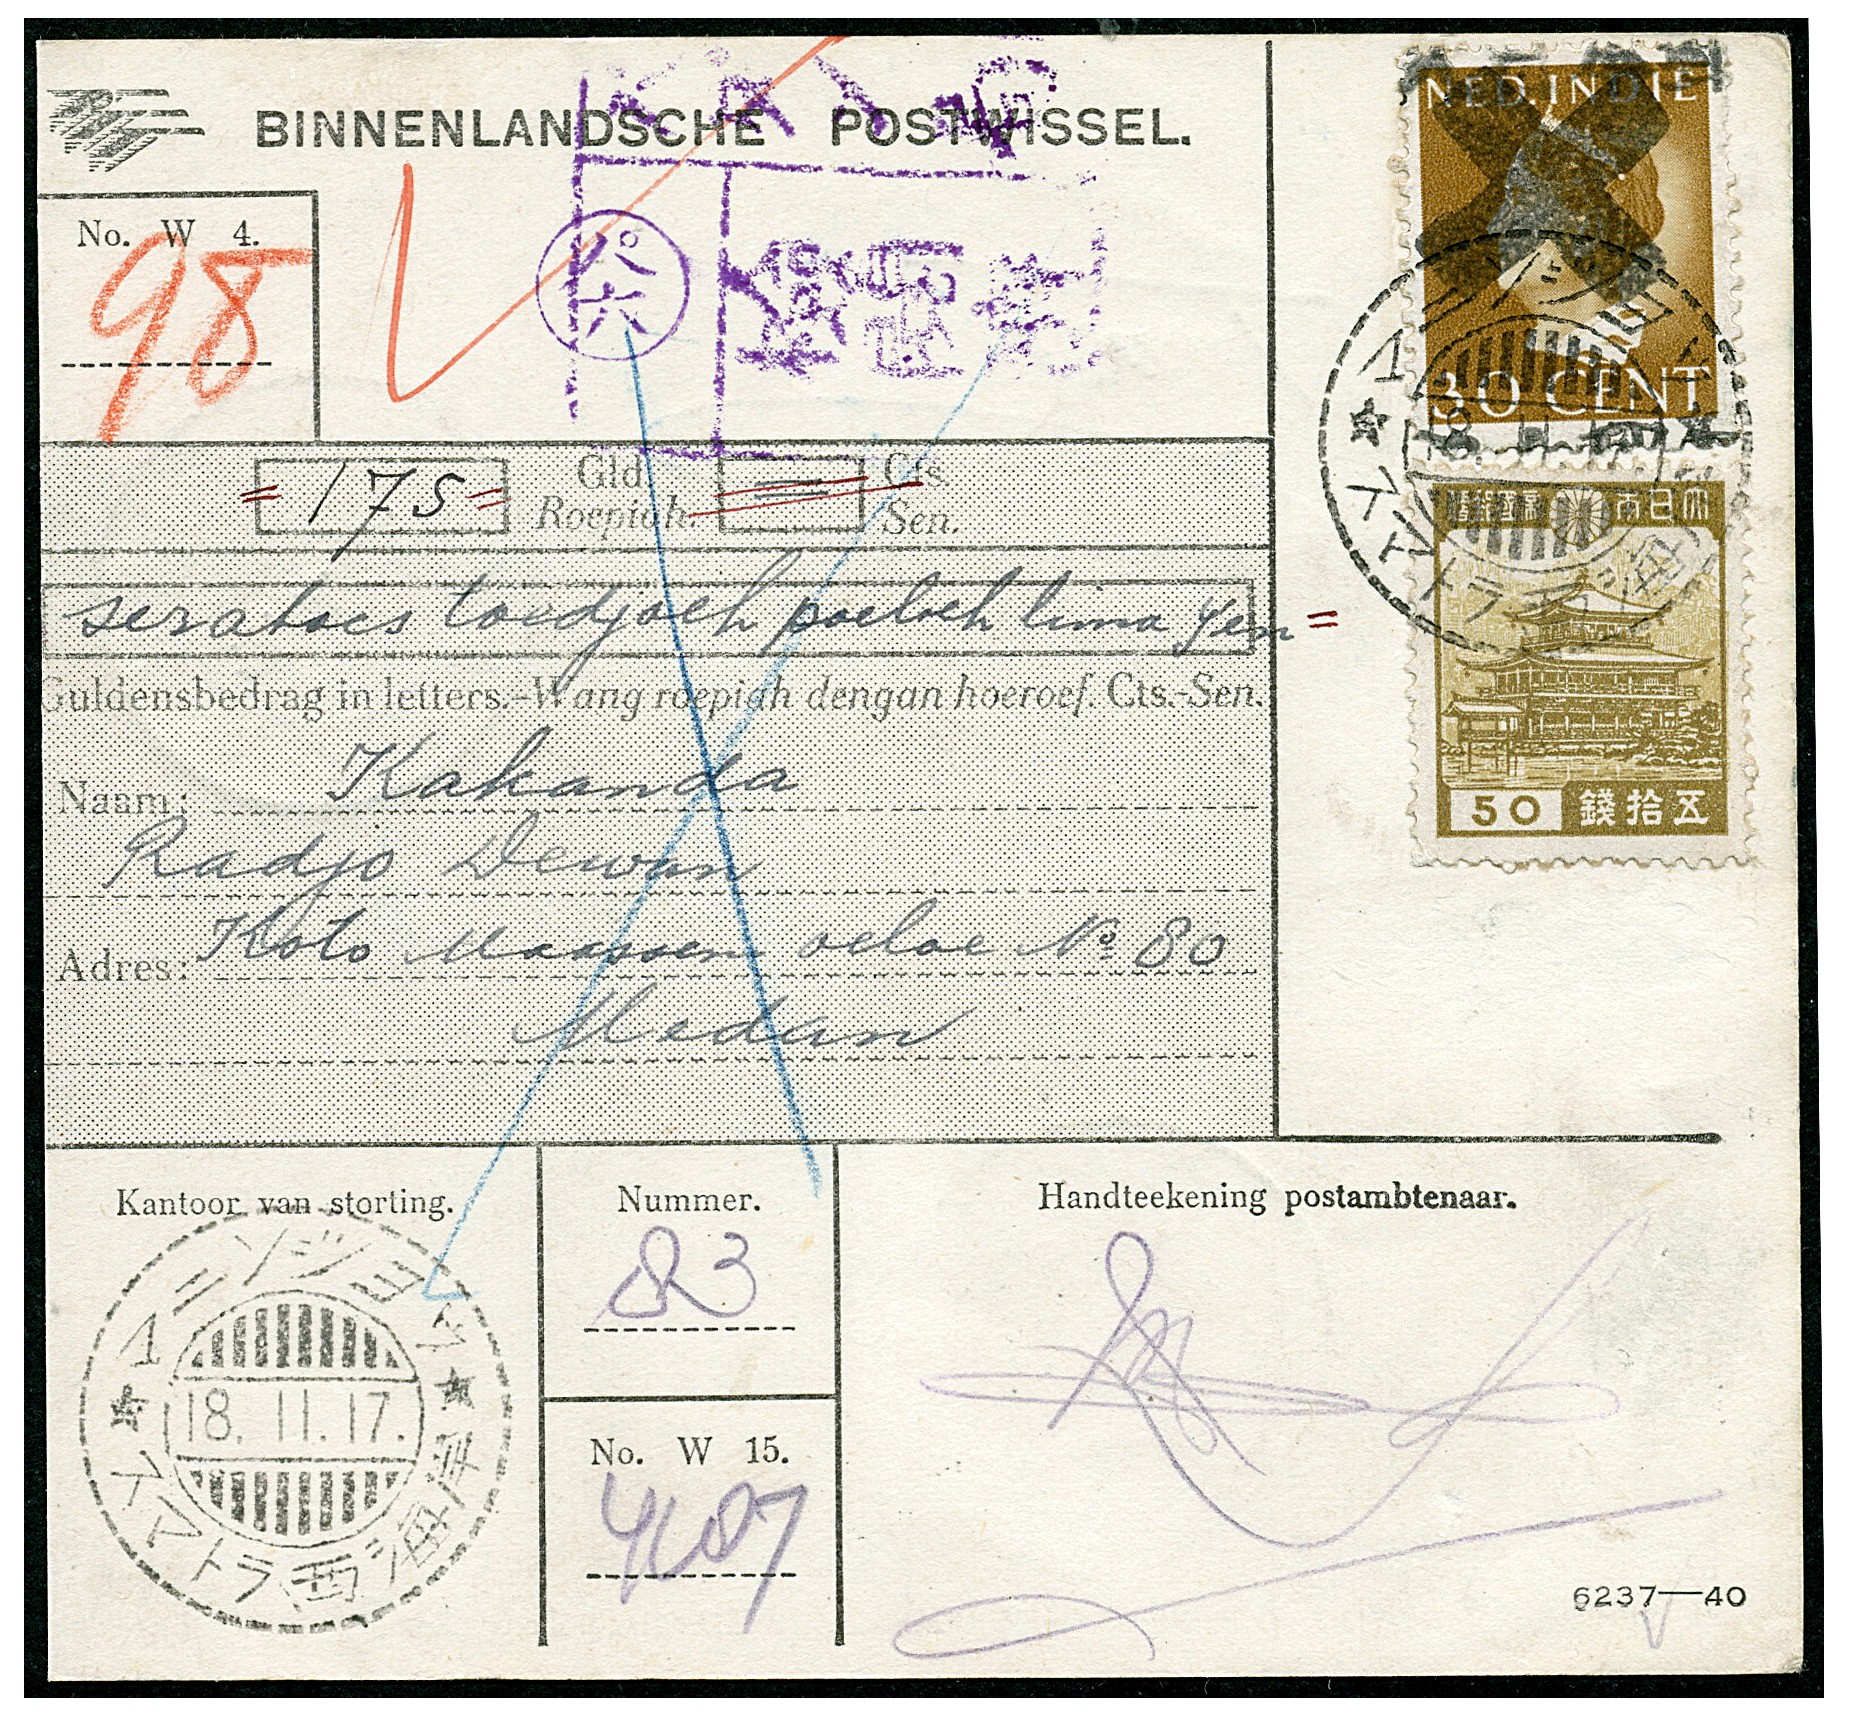 BINNENLANDSCHE POSTWISSEL.
No. W 4.
98
パ
六
NED. INDIE
30 CENT
= 175 = Gld. Roepiah. = Cts. Sen.
seratoes toedjoeh poeloeh lima Yen =
Guldensbedrag in letters.-Wang roepiah dengan hoeroef. Cts.-Sen.
Naam: Kakanda
Radjo Dewan
Adres: Koto oeloe No 80
Medan
大日本帝國郵便
50 五拾錢
Kantoor van storting.
18. 11. 17.
スマトラ西海岸
Nummer.
83
No. W 15.
Handteekening postambtenaar.
6237—40